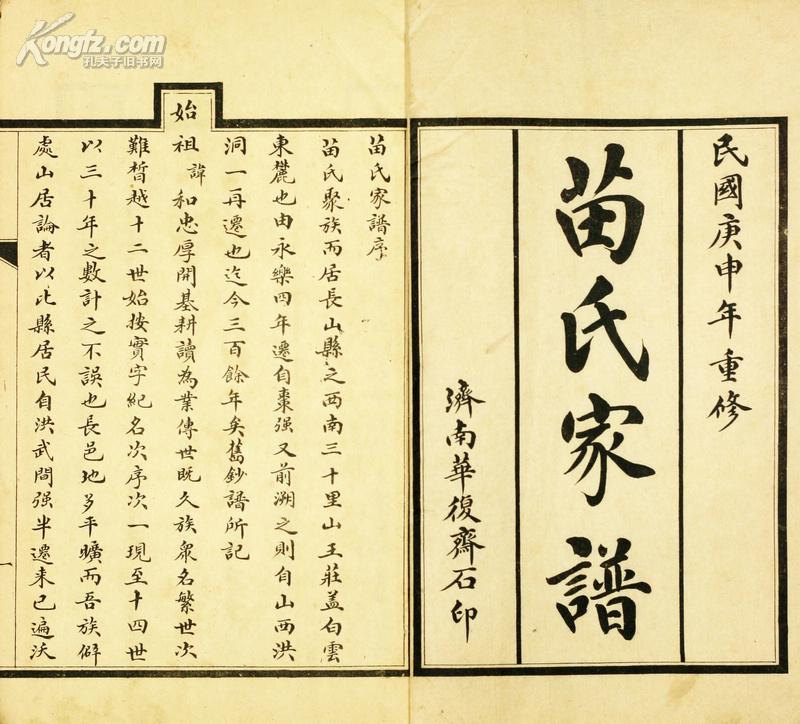 Kongfz.com
孔夫子旧书网
民國庚申年重修
苗氏家譜
濟南華復齋石印
苗氏家譜序
苗氏聚族而居長山縣之西南三十里山王莊蓋白雲
東麓也由永樂四年遷自棗强又前溯之則自山西洪
洞一再遷也迄今三百餘年矣舊鈔譜所記
始祖諱和忠厚開基耕讀為業傳世既久族衆名繁世次
難晳越十二世始按實字紀名次序次一現至十四世
以三十年之數計之不誤也長邑地多平曠而吾族僻
處山居論者以比縣居民自洪武間强半遷来已遍沃
一